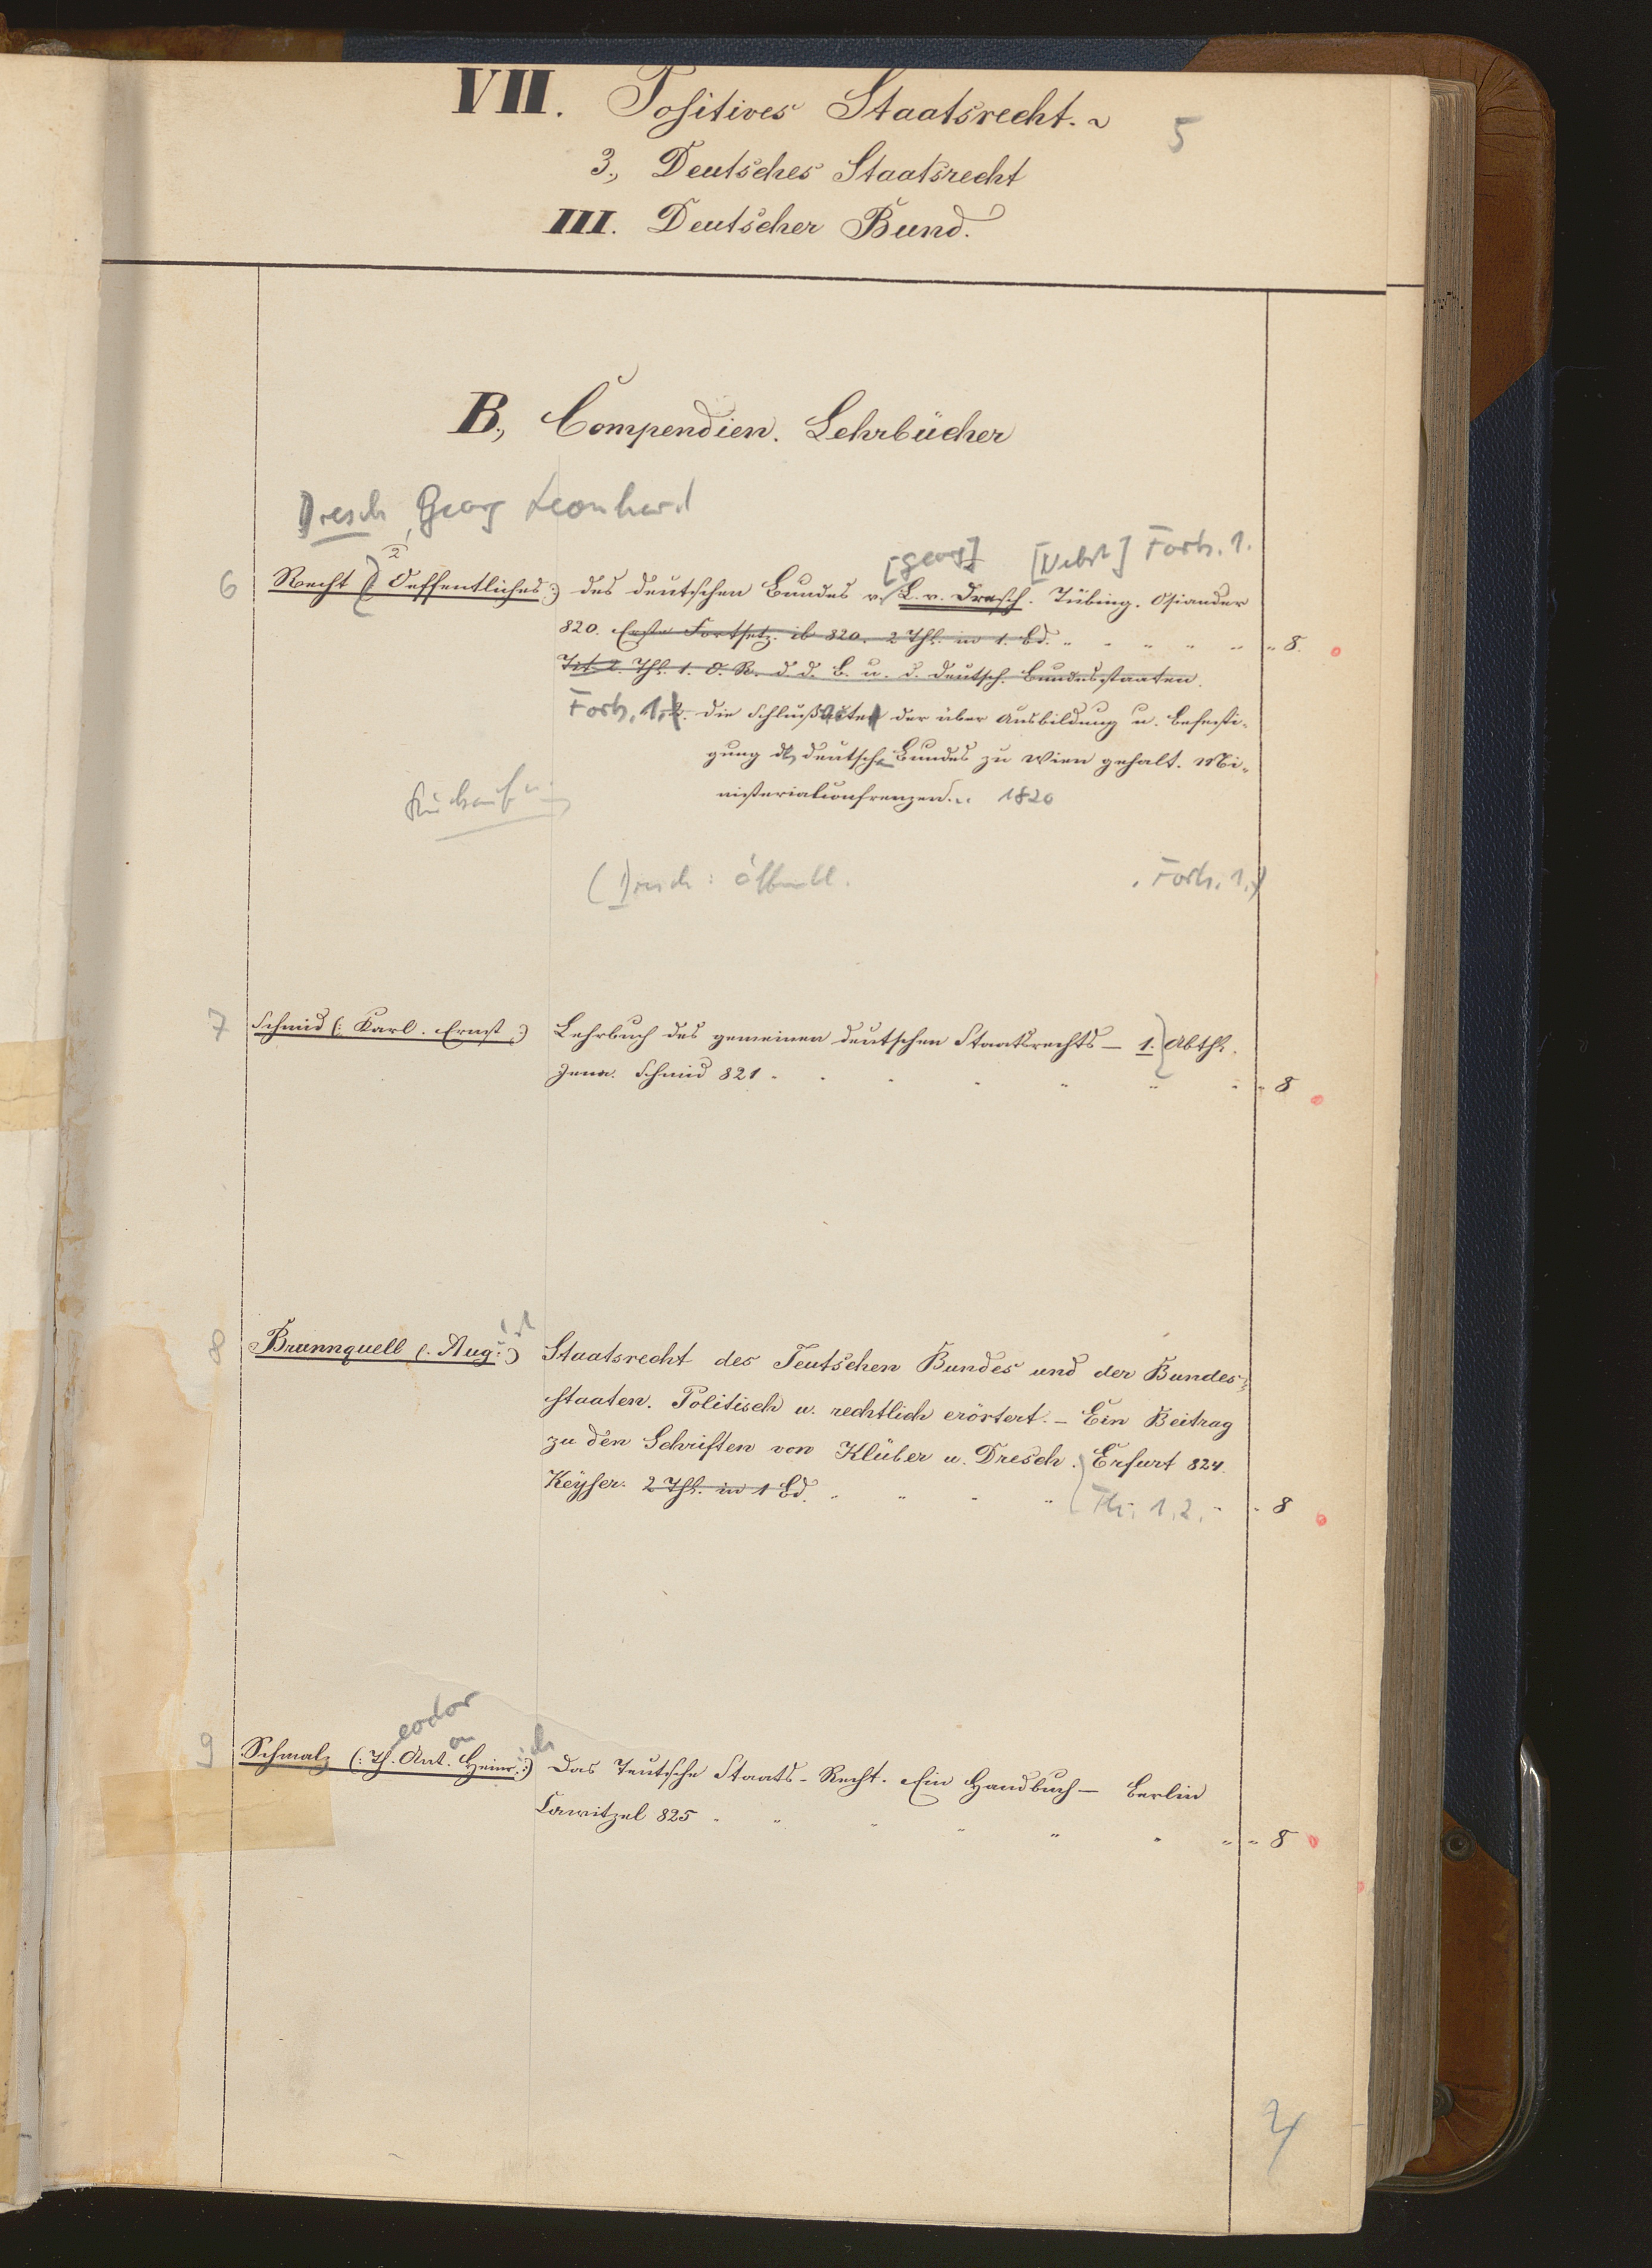 VII. Positives Staatsrecht.
5
3., Deutsches Staatsrecht
III. Deutscher Bund.
B., Compendien. Lehrbücher
Dresch, Georg Leonhard
[Georg] [Nebst] Forts. 1.
6 Recht (: Oeffentliches :) des deutschen Bundes v. L. v. Dresch. Tübing. Osiander
820. Erste Fortsetz. ib 820. 2 Thl. in 1. Bd. 8.
Tit. 2. Thl. 1. O. R. d. d. B. u. d. deutsch. Bundesstaaten.
Forts. 1, 2. die Schlußacte der über Ausbildung u. Befesti-
gung des deutsch. Bundes zu Wien gehalt. Mi-
nisterialconfrenzen. 1820
(Dresch: öffentl. Forts. 1.)
7 Schmid (: Karl. Ernst :) Lehrbuch des gemeinen deutschen Staatsrechts – 1. Abthl.
Jena. Schmid 821 8
8 Brunnquell (. Aug :) Staatsrecht des Teutschen Bundes und der Bundes-
staaten. Politisch u. rechtlich erörtert. – Ein Beitrag
zu den Schriften von Klüber u. Dresch. Erfurt 824.
Keyser. 2 Thl. in 1 Bd. Th. 1, 2. 8
eodor on ich
9 Schmalz (: Th. Ant. Heinr. :) Das teutsche Staats-Recht. Ein Handbuch – Berlin
Lawitzel 825 8